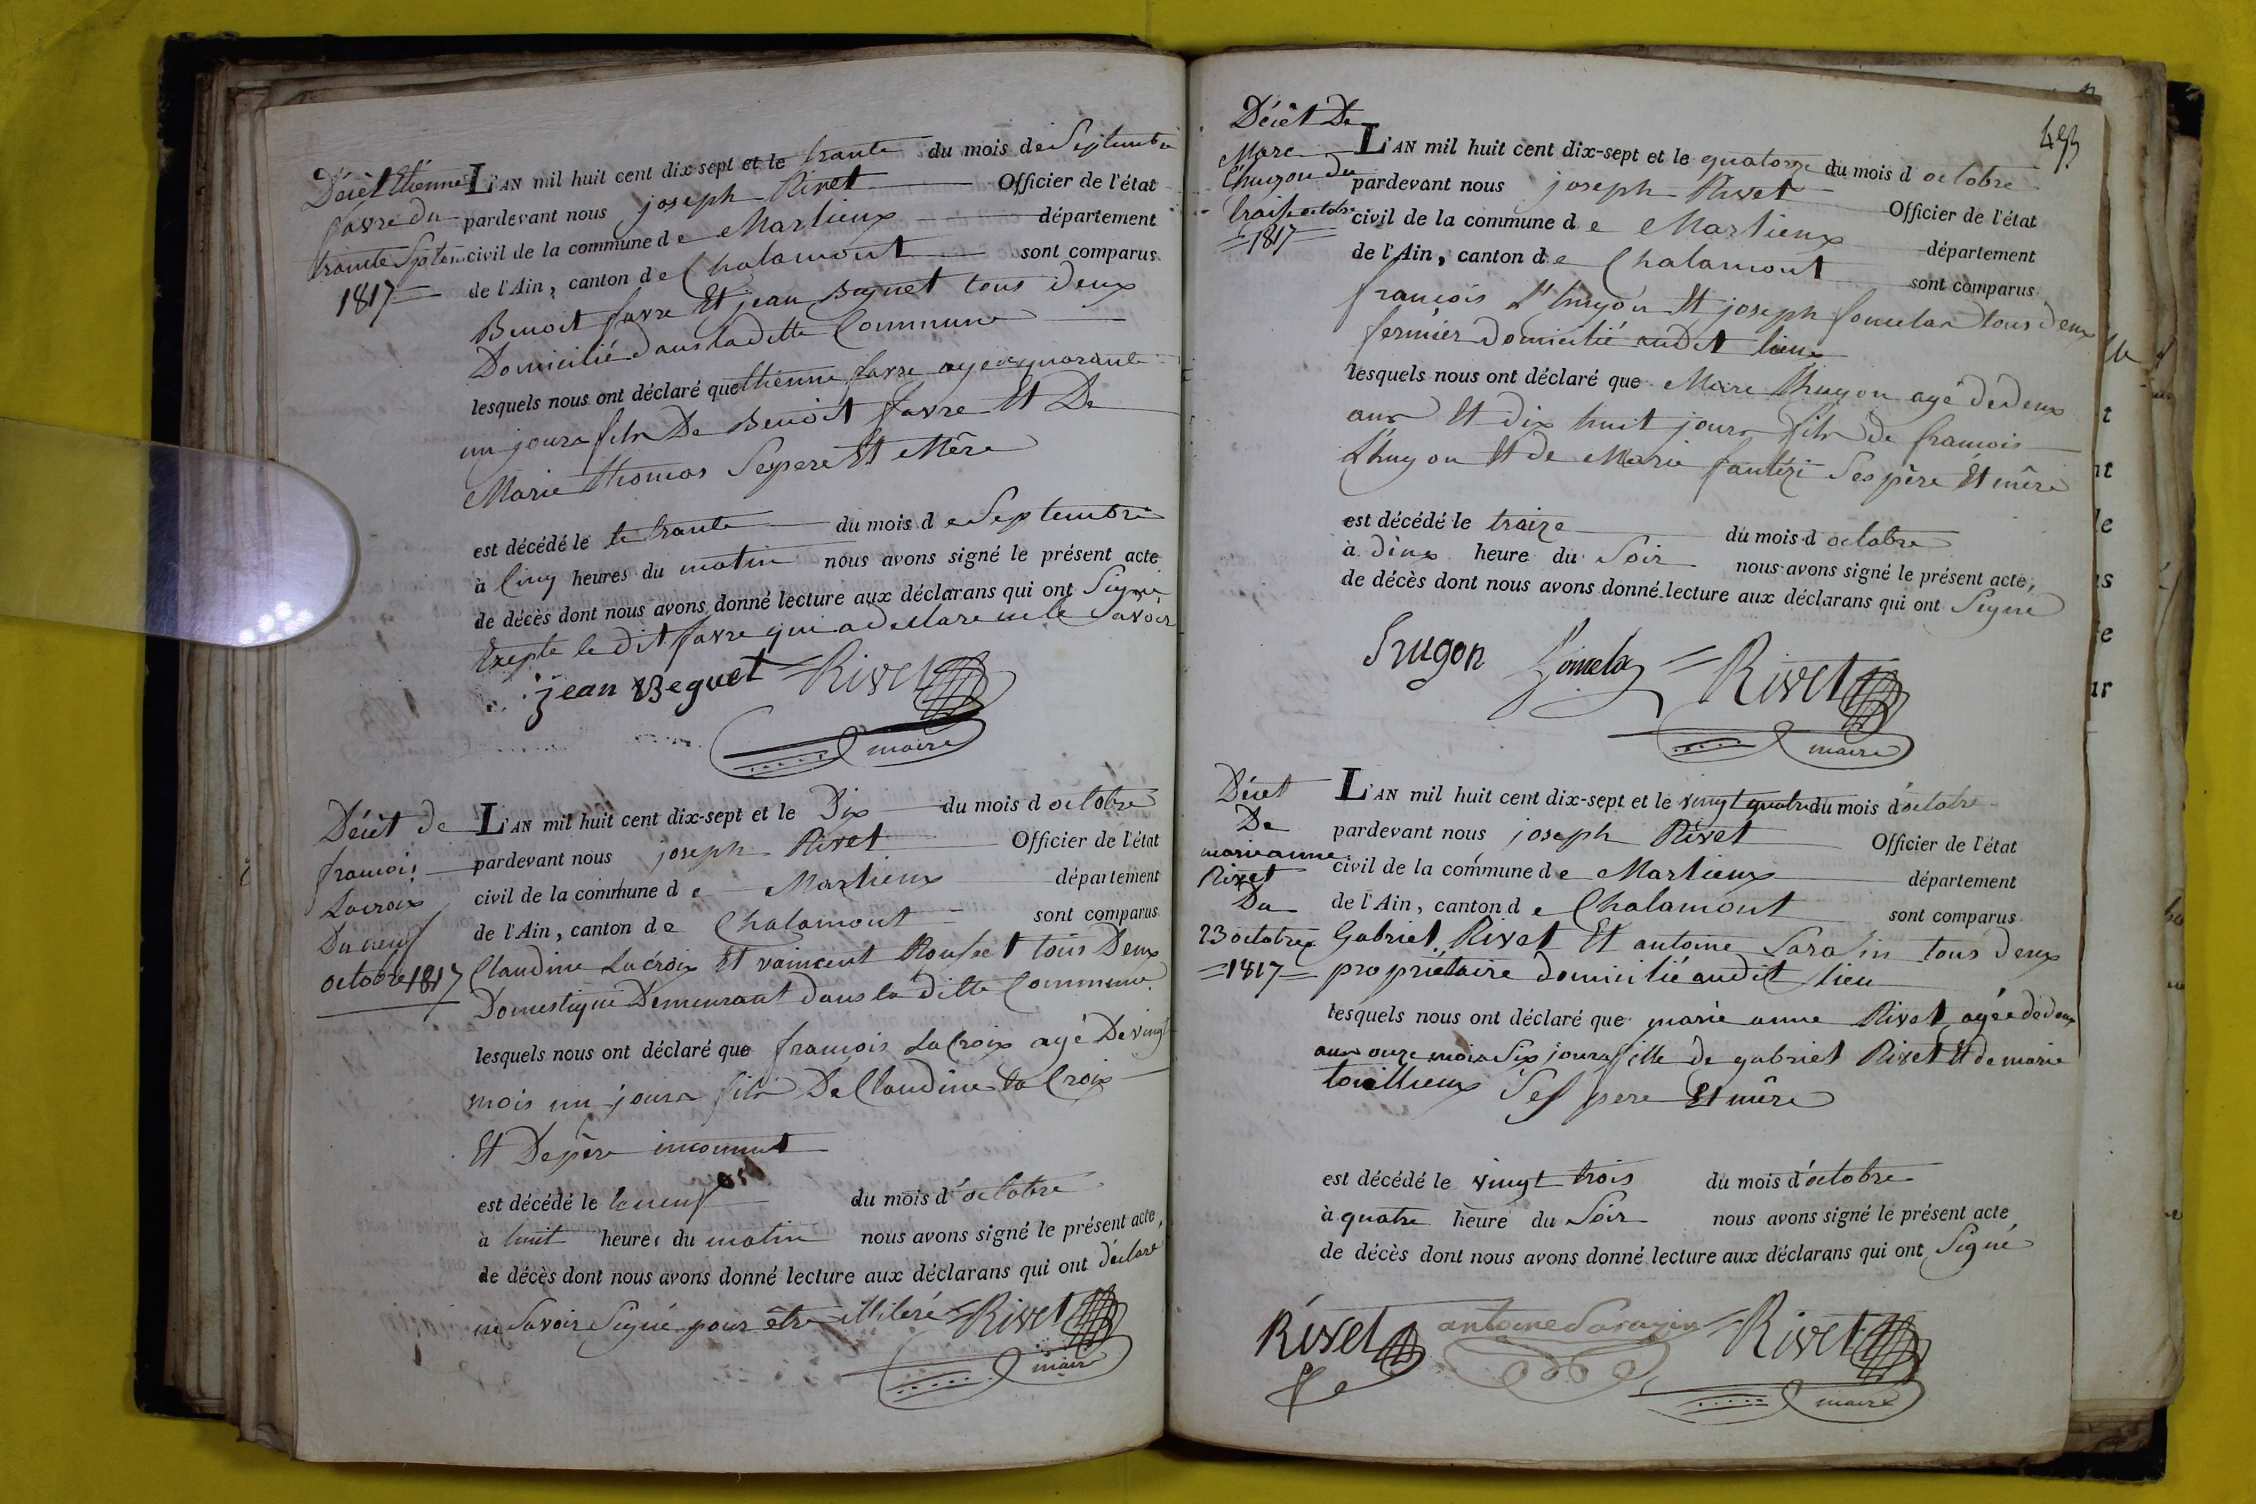 Décèt Etienne
favre du
trante Septem
1817
L'AN mil huit cent dix-sept et le trante du mois de Septembre
pardevant nous joseph Rivet Officier de l'état
civil de la commune de Marlieux département
de l'Ain, canton de Chalamont sont comparus
Benoit favre Et jean Beguet tous deux
Domicilié dans la ditte Commune
lesquels nous ont déclaré que Etienne favre agé de quarante
un jours fils De Benoit favre Et De
Marie Thomas Ses pere Et Mère
est décédé le le trante du mois de Septembre
à Cinq heures du matin nous avons signé le présent acte
de décès dont nous avons donné lecture aux déclarans qui ont Signé
Exepte le dit favre qui a declare ne le Savoir
jean Beguet Rivet
maire
Décèt de
francois
Lacroix
Du neuf
octobre 1817
L'AN mil huit cent dix-sept et le Dix du mois d octobre
pardevant nous joseph Rivet Officier de l'état
civil de la commune de Marlieux département
de l'Ain, canton de Chalamont sont comparus
Claudine Lacroix Et vaincent Rousset tous Deux
Domestique Demeurant dans la ditte Commune
lesquels nous ont déclaré que francois LaCroix agé De vingt
mois un jours fils De Claudine La Croix
Et De père inconnut
est décédé le le neuf du mois d'octobre
à huit heures du matin nous avons signé le présent acte,
de décès dont nous avons donné lecture aux déclarans qui ont déclaré
ne Savoir Signé pour être illiteré Rivet
maire
453
Décèt De
Marc
Thugon du
traise octobre
1817
L'AN mil huit cent dix-sept et le quatorze du mois d octobre
pardevant nous joseph Rivet Officier de l'état
civil de la commune de Marlieux département
de l'Ain, canton de Chalamont sont comparus
francois Et joseph tous deux
fermier domicilié audit lieux
lesquels nous ont déclaré que Marc Thugon agé de deux
ans Et dix huit jours fils de francois
Thugon Et de Marie Ses père Et mère
est décédé le traize du mois d octobre
à deux heure du Soir nous avons signé le présent acte,
de décès dont nous avons donné lecture aux déclarans qui ont Signé
Rivet
maire
Décèt
De
marie anne
Rivet
Du
23 octobre
1817
L'AN mil huit cent dix-sept et le vingt quatre du mois d'octobre
pardevant nous joseph Rivet Officier de l'état
civil de la commune de Marlieux département
de l'Ain, canton de Chalamont sont comparus
Gabriel Rivet Et antoine Sarasin tous deux
propriétaire domicilié audit lieu
lesquels nous ont déclaré que marie anne Rivet agée de deux
ans onze mois Six jours fille de gabriel Rivet Et de marie
Ses pere Et mère
est décédé le vingt trois du mois d'octobre
à quatre heure du Soir nous avons signé le présent acte
de décès dont nous avons donné lecture aux déclarans qui ont Signé
Rivet antoine Sarazin Rivet
maire